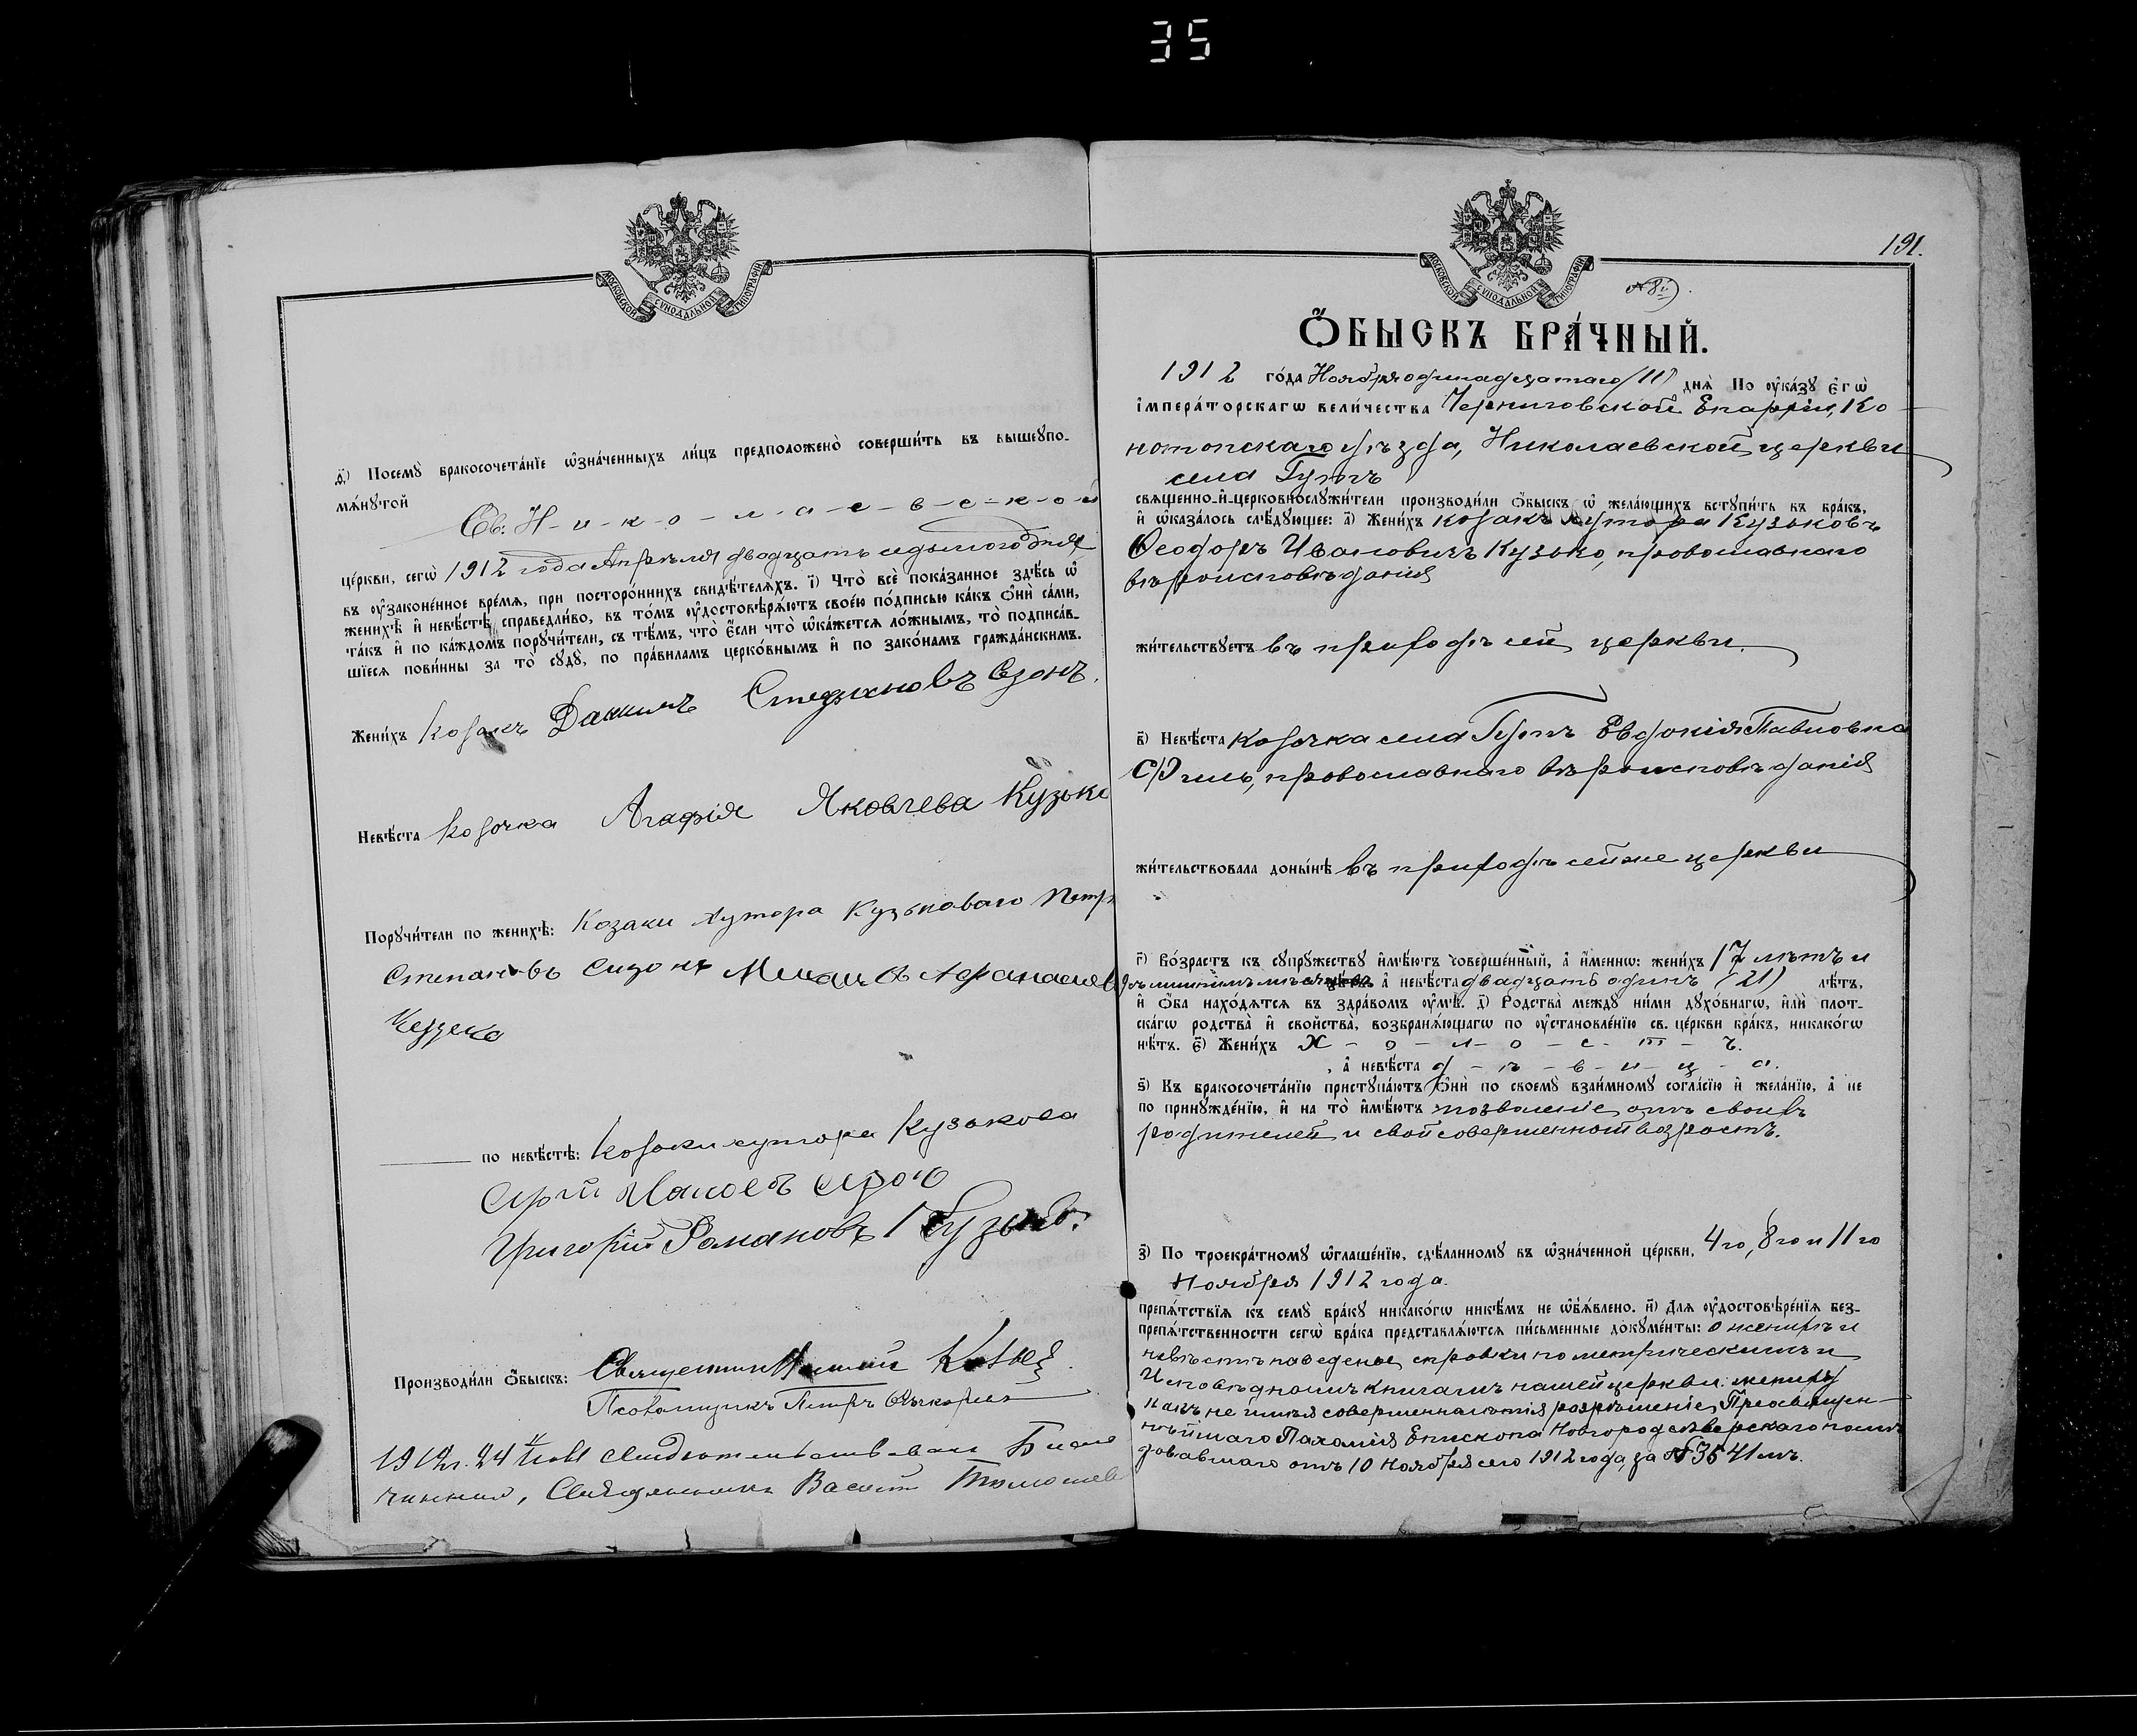 35
МОСКОВСКОЙ СѴНОДАЛЬНОЙ ТИПОГРАФІИ
ѳ҃) Посемꙋ̀ бракосочета́нїе ѡ҆зна́ченныхъ ли́цъ предположено̀ соверши́ть въ вышеꙋпо-
мѧ́нꙋтой Св. Н-и-к-о-л-а-е-в-с-к-о-й
це́ркви, сегѡ̀ 1912 года Апрѣля двадцать седьмого дня
въ ᲂу҆законе́нное вре́мѧ, при посторо́ннихъ свидѣ́телѧхъ. і҃) Что̀ всѐ пока́занное здѣ́сь ѡ҆
женихѣ̀ и҆ невѣ́стѣ справедли́во, въ то́мъ ᲂу҆достовѣрѧ́ютъ свое́ю по́дписью ка́къ ѻ҆нѝ са́ми,
та́къ и҆ по ка́ждомъ порꙋчи́тели, съ тѣ́мъ, что̀ є҆́сли что̀ ѡ҆ка́жетсѧ ло́жнымъ, то̀ подписа́в-
шїесѧ пови́нны за то̀ сꙋдꙋ̀, по пра́виламъ церко́внымъ и҆ по зако́намъ гражда́нскимъ.
Жени́хъ Козакъ Даниилъ Стефановъ Сзонъ.
Невѣ́ста Козачка Агафія Яковлева Кузько
Порꙋчи́тели по женихѣ̀: Козаки хутора Кузьковаго Петръ
Степановъ Сизонъ Афанасиев
Кузько
по невѣ́стѣ: Козаки хутора Кузькова
Григорій Романовъ Кузько.
Производи́ли ѻ҆́быскъ: Священникъ
Псаломщикъ Петръ
1912 г. 24
чинный, Священникъ
МОСКОВСКОЙ СѴНОДАЛЬНОЙ ТИПОГРАФІИ
191.
Ѻ҆́БЫСКЪ БРА́ЧНЫЙ.
1912 го́да Ноября одинадцатаго /11/ днѧ̀ По ᲂу҆ка́зꙋ Є҆гѡ̀
і҆мпера́торскагѡ вели́чества Черниговской Епархіи, Ко-
нотопскаго уѣзда, Николаевской церкви
села Гутъ
свѧщенно-и҆-церковнослꙋжи́тели производи́ли ѻ҆́быскъ ѡ҆ жела́ющихъ встꙋпи́ть въ бра́къ,
и҆ ѡ҆каза́лось слѣ́дꙋющее: а҃) Жени́хъ козакъ хутора Кузьковъ
Ѳеодоръ Ивановичъ Кузько, православнаго
вѣроисповѣданія
жи́тельствꙋетъ въ приходѣ сей церкви.
в҃) Невѣ́ста козачка села Гутъ Евдокія Павловна
православнаго вѣроисповѣданія
жи́тельствовала доны́нѣ въ приходѣ сей же церкви
г҃) Во́зрастъ къ сꙋпрꙋ́жествꙋ и҆мѣ́ютъ соверше́нный, а҆ и҆́меннѡ: жени́хъ 17 лѣтъ и
а҆ невѣ́ста двадцать одинъ (21) лѣ́тъ,
и҆ ѻ҆́ба нахо́дѧтсѧ въ здра́вомъ ᲂу҆мѣ̀. д҃) Родства̀ междꙋ ни́ми дꙋхо́внагѡ, и҆лѝ плот-
ска́гѡ родства̀ и҆ сво́йства, возбранѧ́ющагѡ по ᲂу҆становле́нїю св. це́ркви бра́къ, никако́гѡ
нѣ́тъ. є҃) Жени́хъ Х-о-л-о-с-т-ъ.
, а҆ невѣ́ста д-ѣ-в-и-ц-а.
ѕ҃) Къ бракосочета́нїю пристꙋпа́ютъ ѻ҆нѝ по своемꙋ̀ взаи́мномꙋ согла́сїю и҆ жела́нїю, а҆ не
по принꙋжде́нїю, и҆ на то̀ и҆мѣ́ютъ позволеніе отъ своихъ
родителей и свой совершенный возрастъ.
з҃) По троекра́тномꙋ ѡ҆глаше́нїю, сдѣ́ланномꙋ въ ѡ҆зна́ченной це́ркви, 4го, 8го и 11го
Ноября 1912 года.
препѧ́тствїѧ къ семꙋ̀ бра́кꙋ никако́гѡ никѣ́мъ не ѡ҆б̾ѧ́влено. и҃) Для ᲂу҆достовѣре́нїѧ без-
препѧ́тственности сегѡ̀ бра́ка представлѧ́ютсѧ пи́сьменные докꙋме́нты: о женихѣ и
невѣстѣ наведены справки по метрическимъ и
Исповѣднымъ книгамъ нашей церкви: жениху
какъ не имѣя совершеннолѣтія разрѣшеніе Преосвящен-
нѣйшаго Пахомія Епископа Новгородсѣверскаго
отъ 10 Ноября сего 1912 года, за № 3541мъ.